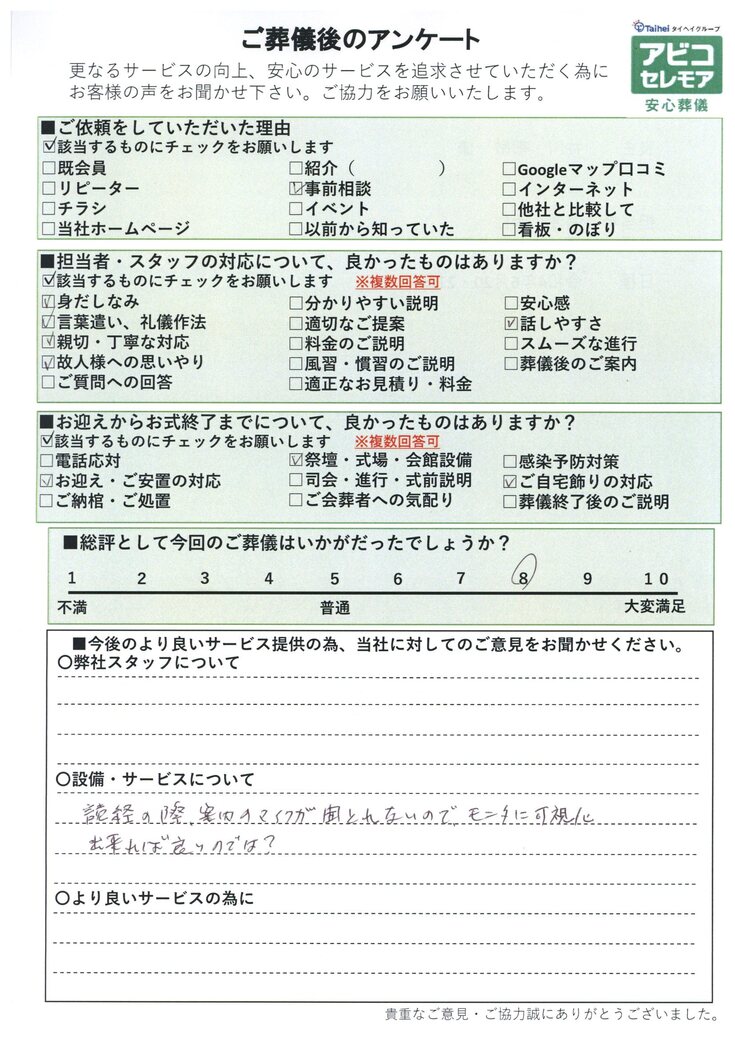 ご葬儀後のアンケート
Taihei タイヘイグループ
アビコ
セレモア
安心葬儀
更なるサービスの向上、安心のサービスを追求させていただく為に
お客様の声をお聞かせ下さい。ご協力をお願いいたします。
■ご依頼をしていただいた理由
☑該当するものにチェックをお願いします
□既会員 □紹介（ ） □Googleマップ口コミ
□リピーター ☑事前相談 □インターネット
□チラシ □イベント □他社と比較して
□当社ホームページ □以前から知っていた □看板・のぼり
■担当者・スタッフの対応について、良かったものはありますか？
☑該当するものにチェックをお願いします ※複数回答可
☑身だしなみ □分かりやすい説明 □安心感
☑言葉遣い、礼儀作法 □適切なご提案 ☑話しやすさ
☑親切・丁寧な対応 □料金のご説明 □スムーズな進行
☑故人様への思いやり □風習・慣習のご説明 □葬儀後のご案内
□ご質問への回答 □適正なお見積り・料金
■お迎えからお式終了までについて、良かったものはありますか？
☑該当するものにチェックをお願いします ※複数回答可
□電話応対 ☑祭壇・式場・会館設備 □感染予防対策
☑お迎え・ご安置の対応 □司会・進行・式前説明 ☑ご自宅飾りの対応
□ご納棺・ご処置 □ご会葬者への気配り □葬儀終了後のご説明
■総評として今回のご葬儀はいかがだったでしょうか？
1 2 3 4 5 6 7 8 9 10
不満 普通 大変満足
■今後のより良いサービス提供の為、当社に対してのご意見をお聞かせください。
〇弊社スタッフについて
〇設備・サービスについて
読経の際、案内のマイクが聞とれないので、モニタに可視化
出来れば良いのでは？
〇より良いサービスの為に
貴重なご意見・ご協力誠にありがとうございました。